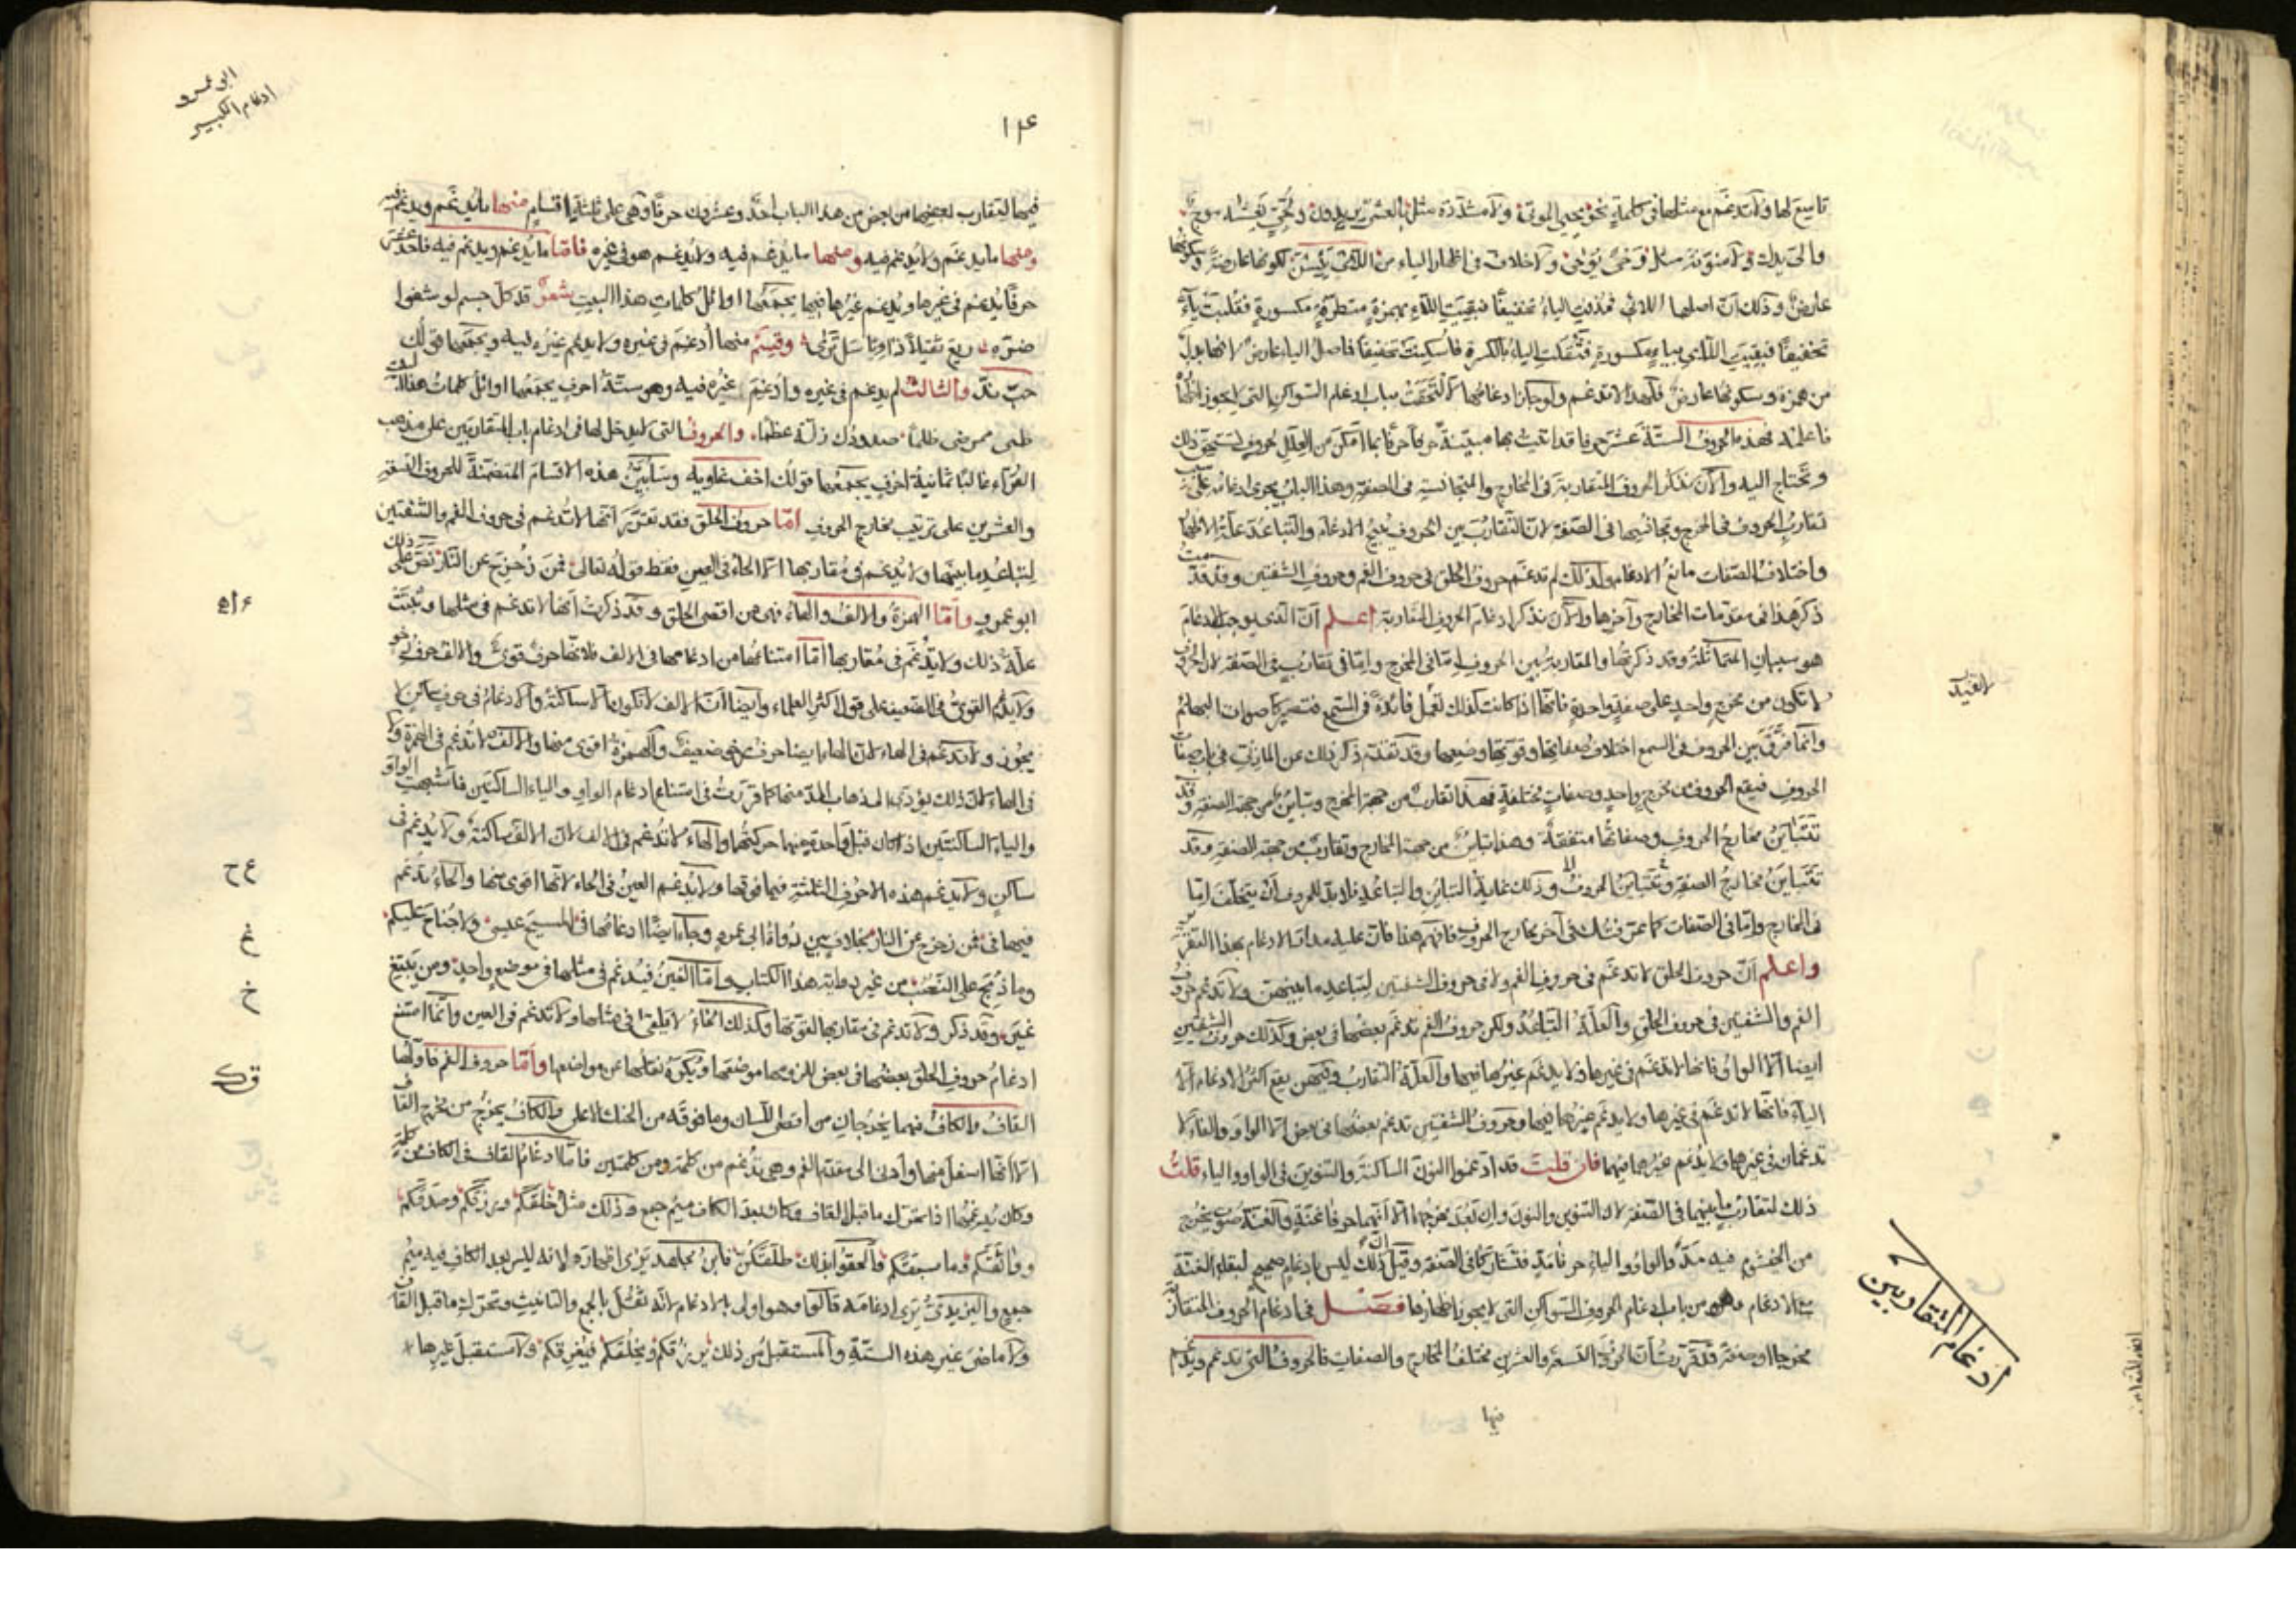 تابع لها ولا تدغم مع مثلها في كلمة نحو يحيي الموتى ولا مشددة مثل بالعشي يريدون
عارض وذلك ان اصلها اللائي فحذفت الياء تخفيفا فبقيت اللاء بهمزة متطرفة مكسورة فقلبت ياء
تخفيفا فبقيت اللاي بياء مكسورة فثقلت الياء بالكسرة فاسكنت تخفيفا فاصل الياء عارض لانها بدل
من همزة وسكونها عارض فلهذا لا تدغم ولو جاز ادغامها لالتحقت بباب ادغام السواكن التي لا يجوز اظهارها
فاعلمه فهذه الحروف الستة عشر حرفا قد اتيت بها مبينة حرفا حرفا بما امكن من العلل
وتحتاج اليه والآن نذكر الحروف المتقاربة في المخارج والمتجانسة في الصفة وهذا الباب يجري ادغامه على
تقارب الحروف في المخرج وتجانسها في الصفة لان التقارب بين الحروف يبيح الادغام والتباعد علة الاظهار
واختلاف الصفات مانع الادغام ولذلك لم تدغم حروف الحلق في حروف الفم وحروف الشفتين وقد قدمت
ذكر هذا في مقدمات المخارج وآخرها والآن نذكر ادغام الحروف المتقاربة اعلم ان الذي يوجب الادغام
هو سببان المماثلة وقد ذكرتها والمقاربة بين الحروف اما في المخرج واما في تقارب في الصفة لان الحروف
لا تكون من مخرج واحد على صفة واحدة فانها اذا كانت كذلك لم تعمل فائدة في السمع فتصير كاصوات البهائم
وانما فرق بين الحروف في السمع اختلاف صفاتها وقوتها وضعفها وقد تقدم ذكر ذلك عن المازني في باب صفات
الحروف فيقع الحروف من مخرج واحد وصفات مختلفة فهذا تقارب من جهة المخرج وتباين من جهة الصفة وقد
تتباين مخارج الحروف وصفاتها متفقة وهذا تباين من جهة المخارج وتقارب من جهة الصفة وقد
في المخارج واما في الصفات كما عرفتك في آخر مخارج الحروف فافهم هذا فان عليه مدار الادغام بهذا التقرير
واعلم ان حروف الحلق لا تدغم في حروف الفم ولا في حروف الشفتين لتباعد ما بينهن ولا تدغم حروف
الفم والشفتين في حروف الحلق والعلة التباعد ولكن حروف الفم تدغم بعضها في بعض وكذلك حروف الشفتين
ايضا الا الواو فانها لا تدغم في غيرها ولا يدغم غيرها فيها والعلة التقارب وفيهن يقع اكثر الادغام الا
الياء فانها لا تدغم في غيرها ولا يدغم غيرها فيها وحروف الشفتين تدغم بعضها في بعض الا الواو والفاء لا
تدغمان في غيرها ولا يدغم غيرها فيها فان قلت قد ادغموا النون الساكنة والتنوين في الواو والياء قلت
ذلك لتقارب ما بينهما في الصفة لان التنوين والنون وان بعد مخرجهما الا انهما حرفا غنة والغنة صوت يخرج
من الخيشوم فيه مد والواو والياء حرفا مد فتشاركا في الصفة وقيل ان ذلك ليس بادغام صحيح لبقاء الغنة
مع الادغام وهو من باب ادغام الحروف السواكن التي لا يجوز اظهارها فصل في ادغام الحروف المتقاربة
مخرجا او صفة قد قررت ان الحروف التسعة والعشرين مختلفة المخارج والصفات فالحروف التي تدغم ويدغم
فيها
لا تفيد
ادغام المتقاربين
ابو عمرو
ادغام الكبير
١٢٤
فيها لتقارب بعضها من بعض من هذا الباب احد وعشرون حرفا وهي على ثلثة اقسام منها ما يدغم ويدغم فيه
ومنها ما يدغم ولا يدغم فيه ومنها ما يدغم فيه ولا يدغم هو في غيره فاما ما يدغم ويدغم فيه فاحد عشر
حرفا يدغم في غيرها ويدغم غيرها فيها يجمعها اوائل كلمات هذا البيت شعر قد كل جسم لو شفوا
وقسم منها ادغم في غيره ولا يدغم غيره فيه ويجمعها قولك
والثالث لم يدغم في غيره وادغم غيره فيه وهو ستة احرف يجمعها اوائل كلمات هذا البيت
والحروف التي لا يدخل لها في ادغام باب المتقاربين على مذهب
القراء غالبا ثمانية احرف يجمعها قولك اخف غاويه وسابين هذه الاقسام المتضمنة للحروف التسعة
والعشرين على ترتيب مخارج الحروف اما حروف الحلق فقد تقرر انها لا تدغم في حروف الفم والشفتين
لتباعد ما بينها ولا يدغم في مقاربها الا الحاء في العين فقط قوله تعالى فمن زحزح عن النار نص على ذلك
ابو عمرو واما الهمزة والالف والهاء فهي من اقصى الحلق وقد ذكرت انها لا تدغم في مثلها وبينت
علة ذلك ولا تدغم في مقاربها اما امتناعها من ادغامها في الالف فلانها حرف قوي والالف حرف
ولا يدغم القوي في الضعيف على قول اكثر العلماء وايضا ان الالف لا تكون الا ساكنة والادغام في حرف ساكن لا
يجوز ولا تدغم في الهاء لان الهاء ايضا حرف ضعيف والهمزة اقوى منها والالف لا تدغم في الهمزة ولا
في الهاء لان ذلك يؤدي الى ذهاب المد منها كما قررت في امتناع ادغام الواو والياء الساكنتين فاشبهت الواو
والياء الساكنتين اذا كان قبل واحدة منهما حركتها والهاء لا تدغم في الالف لان الالف ساكنة ولا يدغم في
ساكن ولا يدغم هذه الاحرف الثلثة فيما فوقها ولا يدغم العين في الحاء لانها اقوى منها والحاء تدغم
فيها في فمن زحزح عن النار بخلاف بين رواة ابي عمرو وجاء ايضا ادغامها في المسيح عيسى ولا جناح عليكم
وما ذبح على النصب من غير رواية هذا الكتاب واما الغين فيدغم في مثلها في موضع واحد ومن يبتغ
غير وقد ذكر ولا تدغم في مقاربها لقوتها وكذلك الخاء لا يلتقي في مثلها ولا تدغم في الغين وانما امتنع
ادغام حروف الحلق بعضها في بعض للزومها موضعها ويكره نقلها من مواضعها واما حروف الفم فاولها
القاف والكاف فهما يخرجان من اقصى اللسان وما فوقه من الحنك الاعلى والكاف يخرج من مخرج القاف
الا انها اسفل منها وادنى الى مقدم الفم وهي تدغم من كلمة ومن كلمتين فاما ادغام القاف في الكاف من كلمة
وكان يدغمها اذا تحرك ما قبل القاف وكان بعد الكاف ميم جمع وذلك مثل خلقكم ورزقكم وصدقكم
وواثقكم وما سبقكم فالحقوا بذلك طلقكن فابن مجاهد يرى اظهاره لانه ليس بعد الكاف فيه ميم
جمع واليزيدي يرى ادغامه قالوا وهو اولى بالادغام لانه ثقل بالجمع والتانيث وتحرك ما قبل القاف
ولا ماضي غير هذه الستة والمستقبل من ذلك يرزقكم ويخلقكم فيغرقكم ولا مستقبل غيرها
ء ا ه
ع ح
غ
خ
ق ك